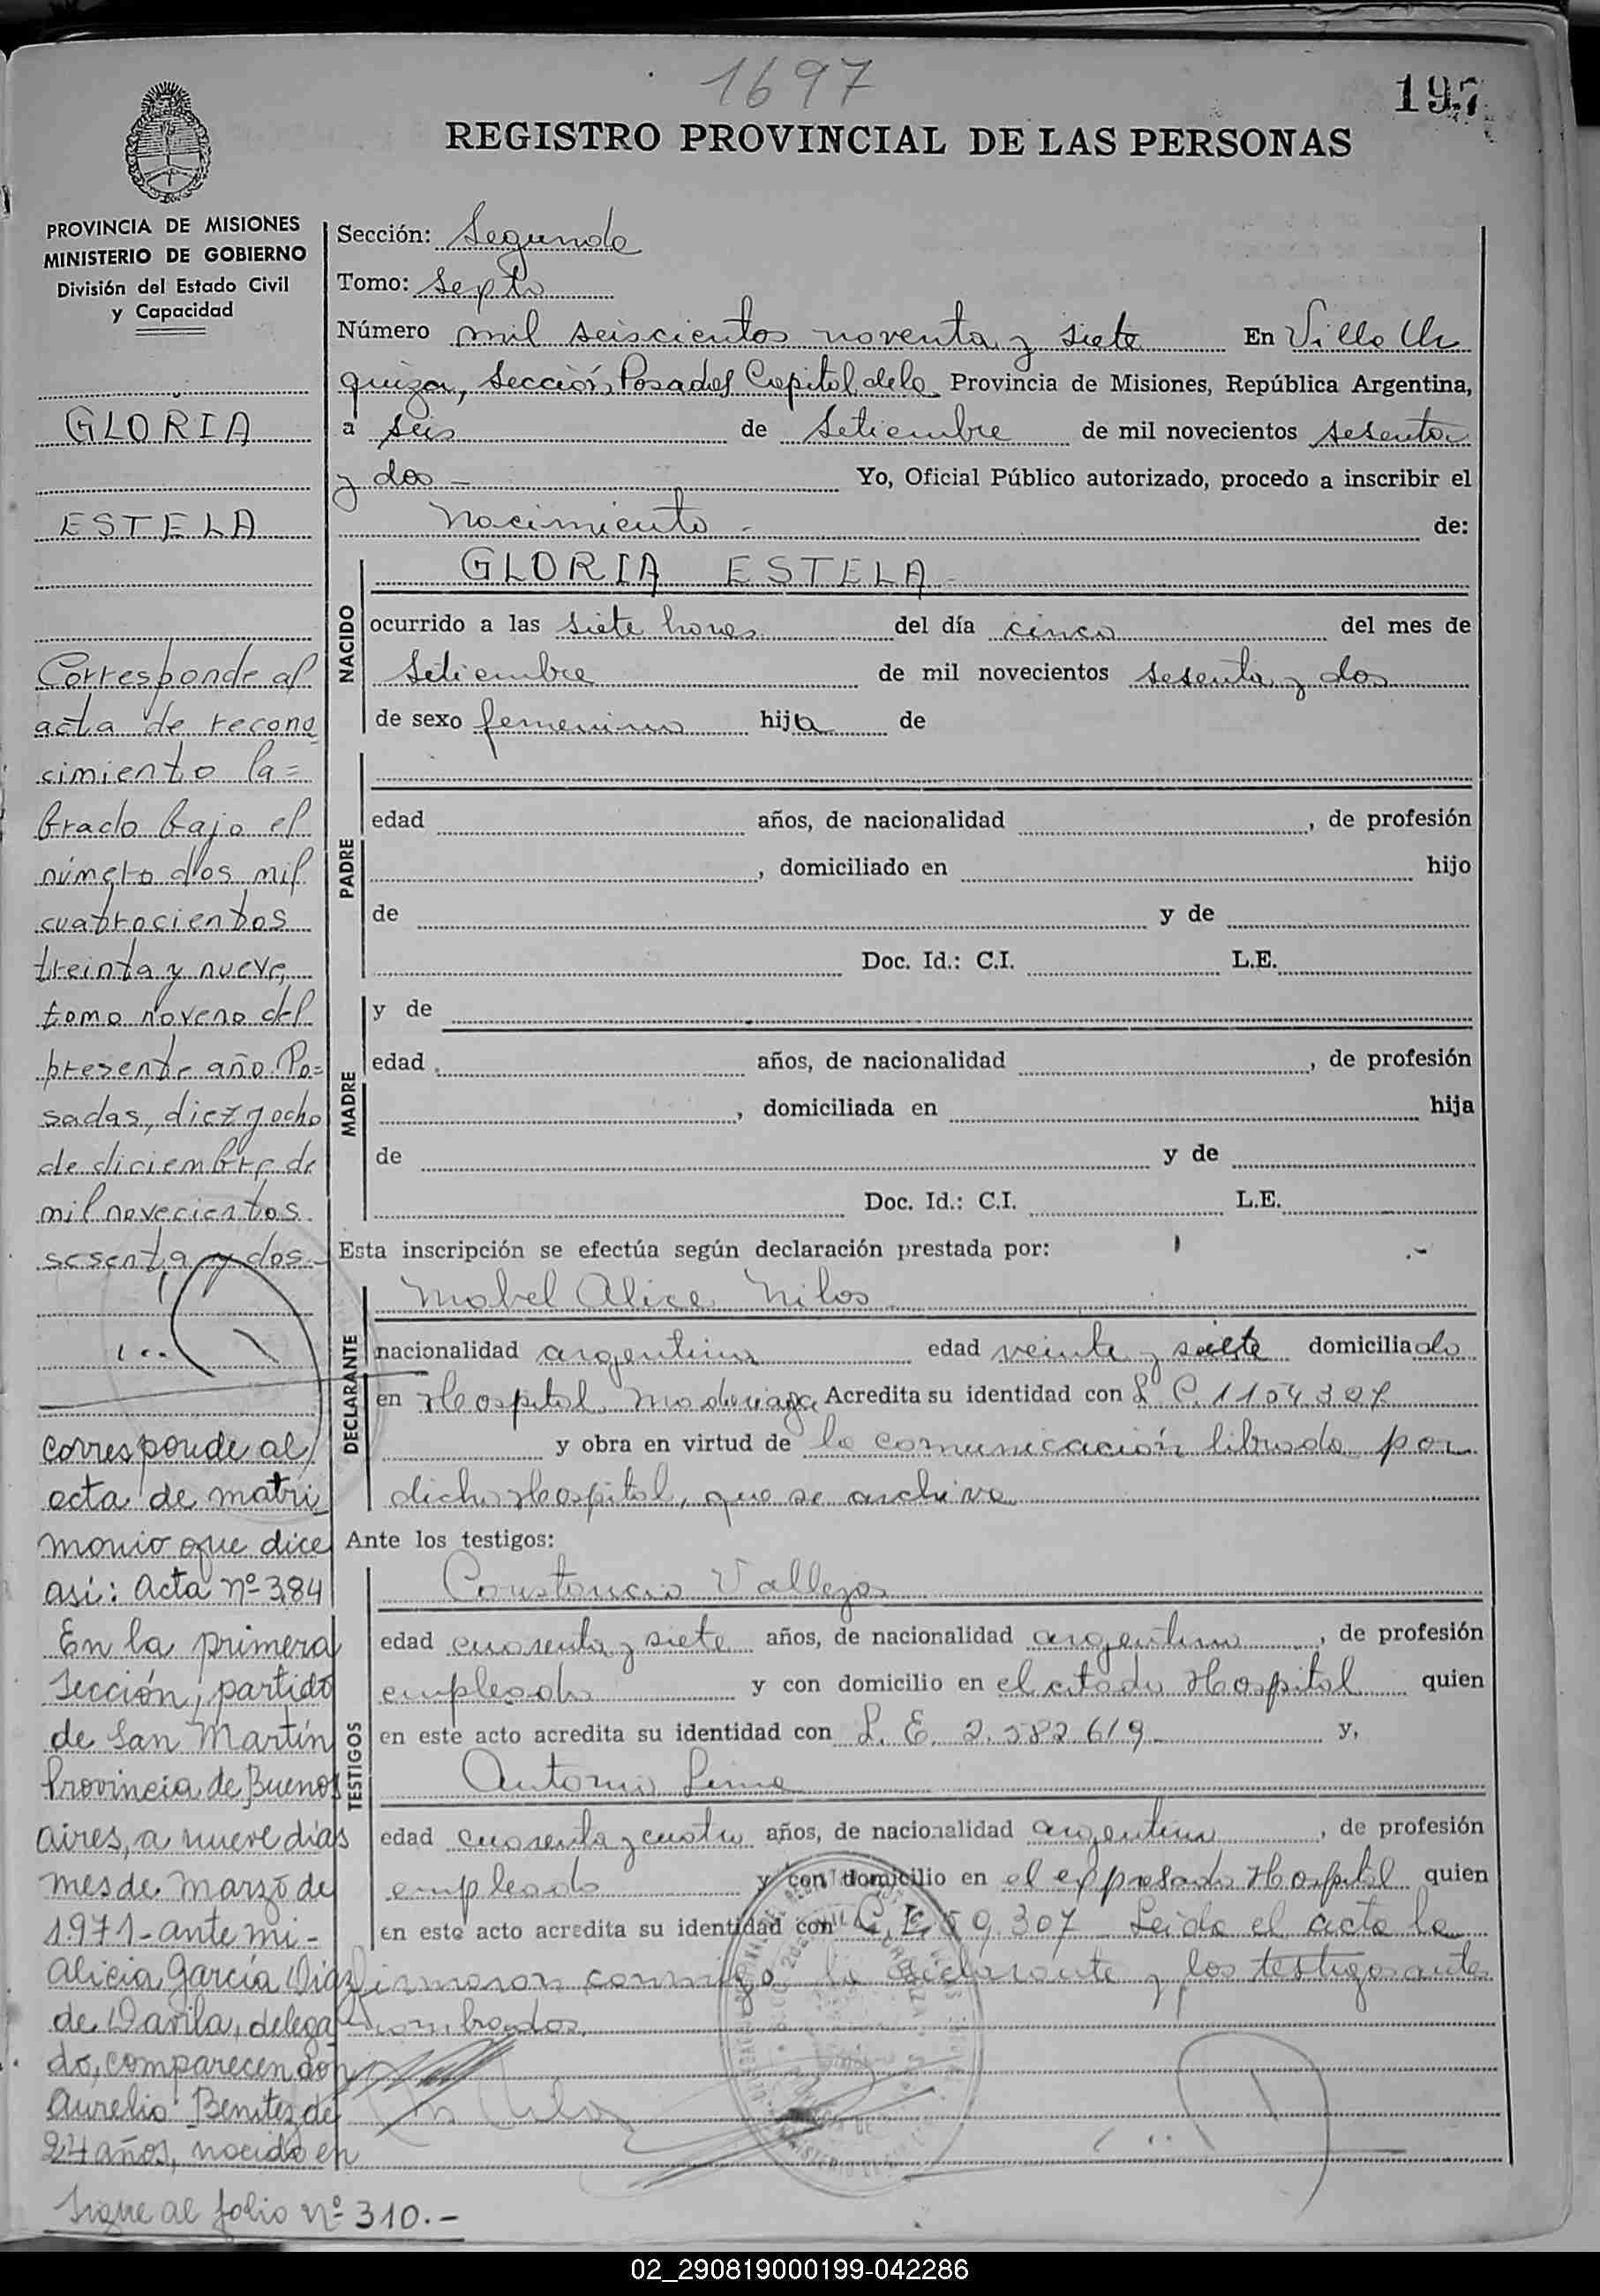 1697
197
REGISTRO PROVINCIAL DE LAS PERSONAS
PROVINCIA DE MISIONES
MINISTERIO DE GOBIERNO
División del Estado Civil
y Capacidad
GLORIA
ESTELA
Corresponde al
acta de recono
cimiento la=
brado bajo el
número dos mil
cuatrocientos
treinta y nueve,
tomo noveno del
presente año. Po=
sadas, diez y ocho
de diciembre de
mil novecientos
sesenta y dos.-
corresponde al
acta de matri
monio que dice
asi: Acta nº 384
En la primera
Sección, partido
de San Martín
Provincia de Buenos
aires, a nueve días
mes de Marzo de
1971- ante mi-
alicia García Diaz
de Davila, delega
do, comparecen don
Aurelio Benitez de
24 años, nacido en
Sigue al folio nº 310.-
Sección: Segunda
Tomo: Sexto
Número mil seiscientos noventa y siete En Villa Ur
quiza, Sección Posadas Capital de la Provincia de Misiones, República Argentina,
a seis de Setiembre de mil novecientos sesenta
y dos - Yo, Oficial Público autorizado, procedo a inscribir el
Nacimiento - de:
NACIDO
GLORIA ESTELA
ocurrido a las siete horas del día cinco del mes de
Setiembre de mil novecientos sesenta y dos
de sexo femenino hija de
PADRE
edad años, de nacionalidad , de profesión
, domiciliado en hijo
de y de
Doc. Id.: C.I. L.E.
MADRE
y de
edad años, de nacionalidad , de profesión
, domiciliada en hija
de y de
Doc. Id.: C.I. L.E.
Esta inscripción se efectúa según declaración prestada por:
DECLARANTE
Mabel Alice Milos
nacionalidad argentina edad veinte y siete domiciliado
en Hospital Madariaga Acredita su identidad con L C. 1104307
y obra en virtud de la comunicación librada por
dicho Hospital, que se archiva
Ante los testigos:
TESTIGOS
Constancio Vallejos
edad cuarenta y siete años, de nacionalidad argentino , de profesión
empleado y con domicilio en el citado Hospital quien
en este acto acredita su identidad con L. E. 2.582.619 y,
Antonio Lima
edad cuarenta y cuatro años, de nacionalidad argentino , de profesión
empleado y con domicilio en el expresado Hospital quien
en este acto acredita su identidad con 59.307 Leida el acta la
firmaron conmigo la declarante y los testigos antes
nombrados
02_290819000199-042286